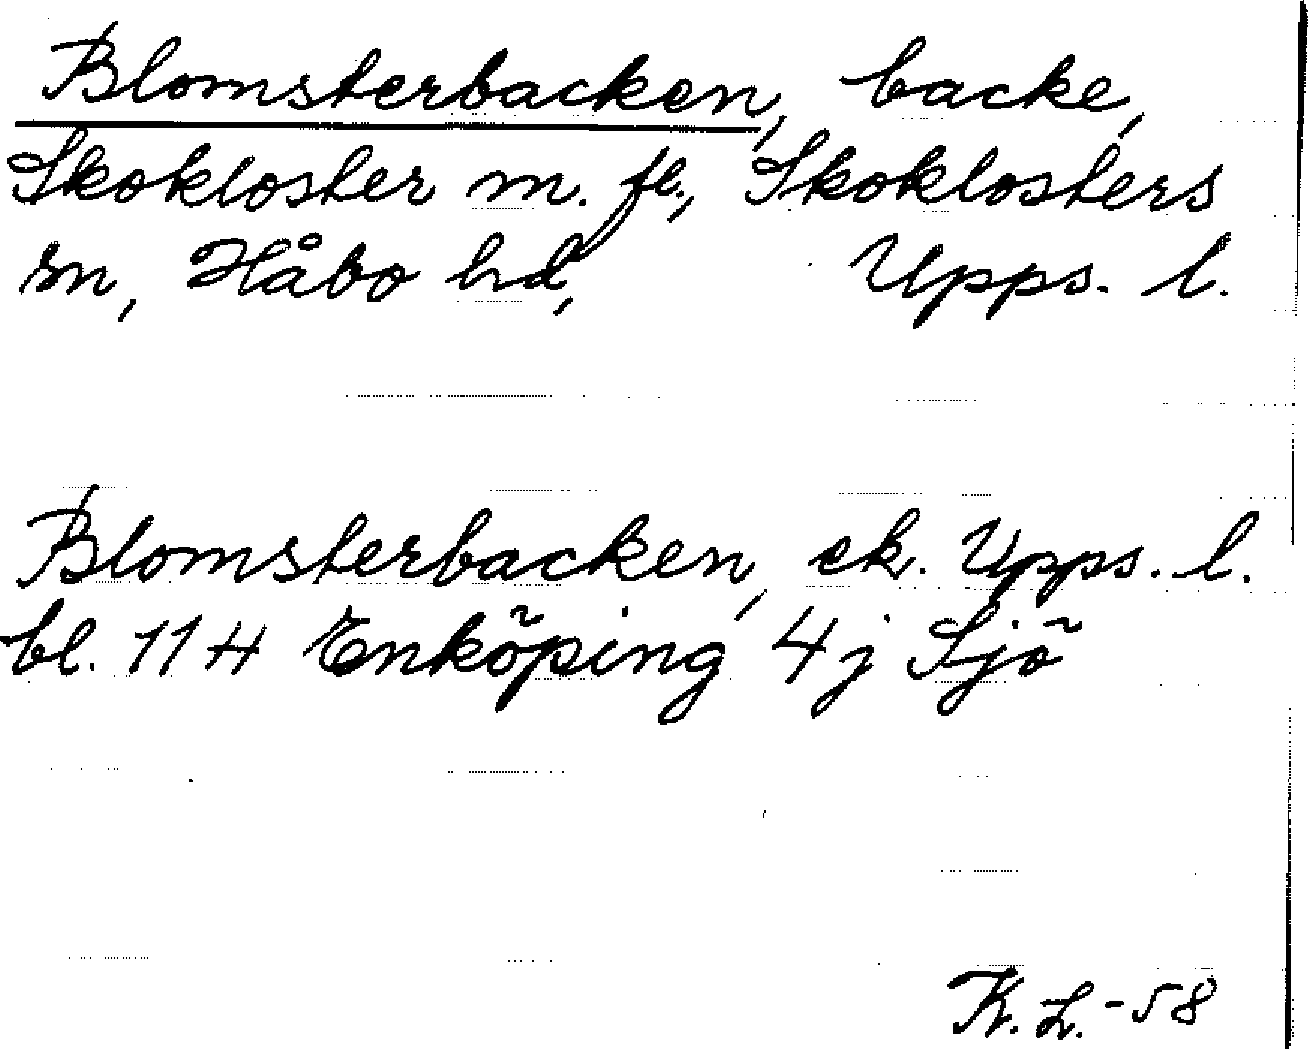 Blomsterbacken, backe,
Skokloster m. fl., Skoklosters
sn, Håbo hd, Upps. l.
Blomsterbacken, ek. Upps. l.
bl. 11 H Enköping 4j Sjö
K. L. -58